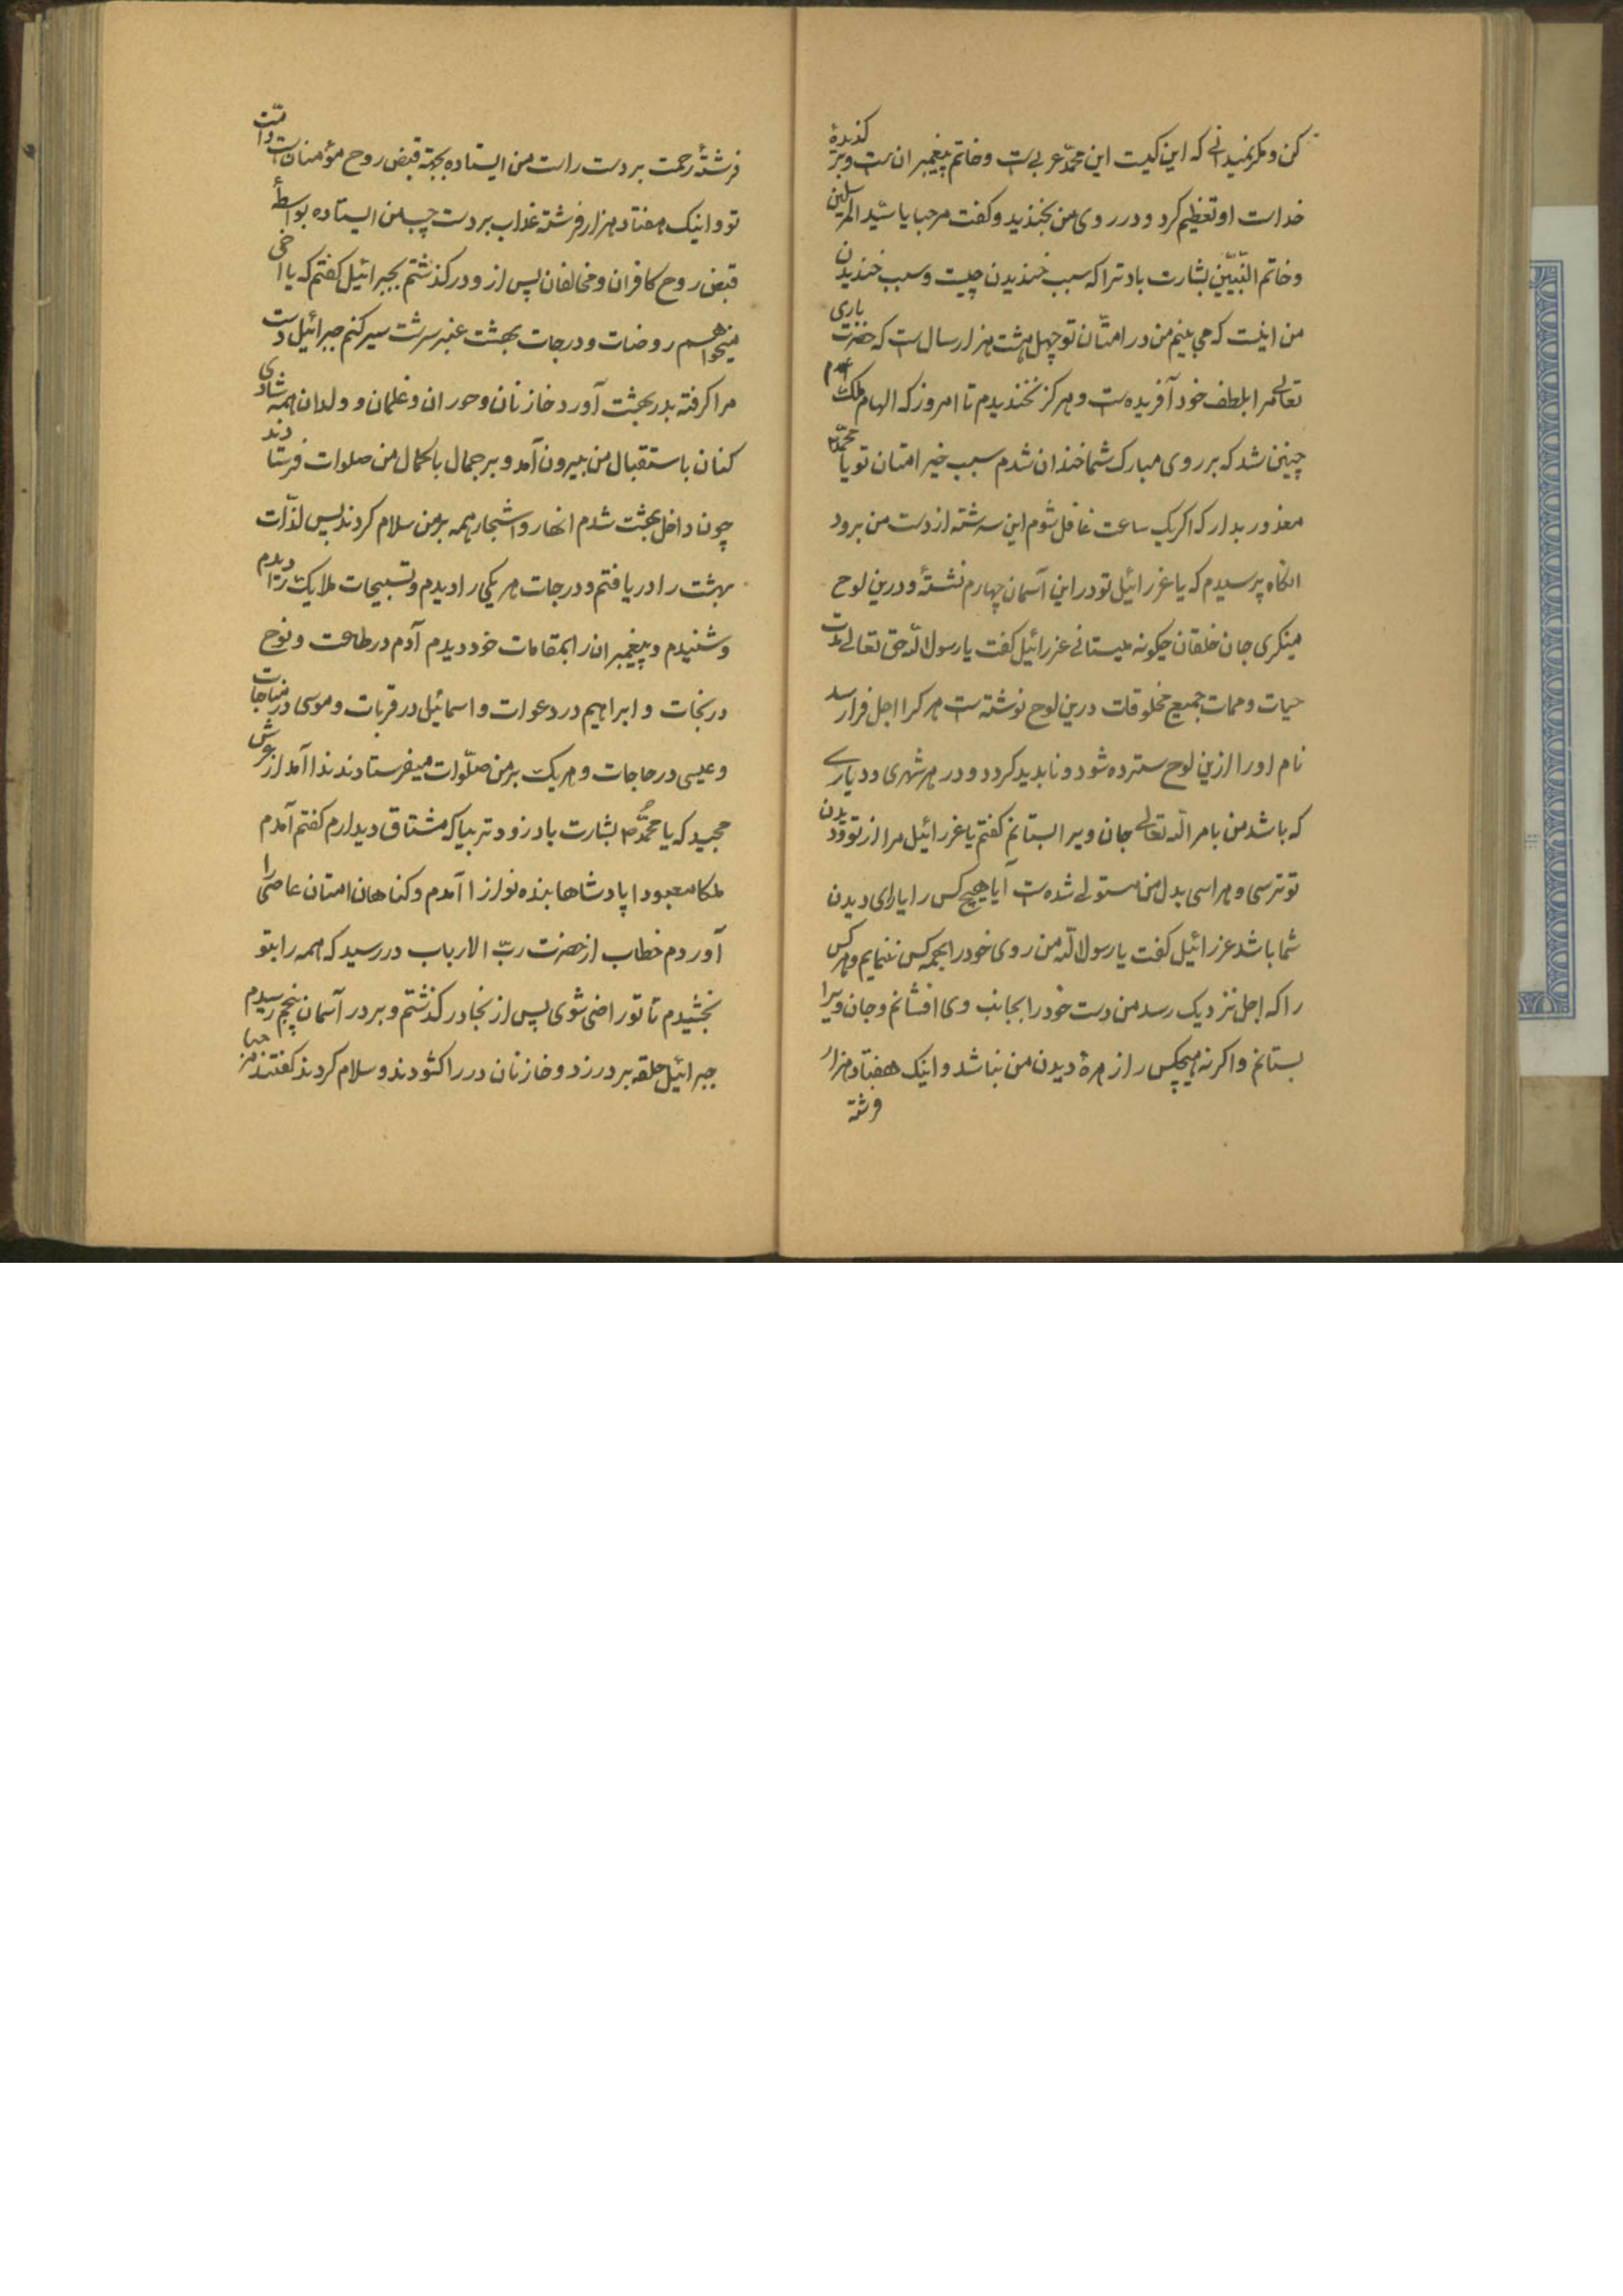 کن و مکر نمیدانی که این کیست این محمّد عربی است و خاتم پیغمبران است و بر کزیدهٔ
خداست او تعظیم کرد و در روی من بخندید و کفت مرحبا یا سیّد المرسلین
و خاتم النّبیّین بشارت باد ترا که سبب خندیدن چیست و سبب خندیدن
من اینست که می بینم من در امتّان تو چهل هشت هزار سال است که حضرت باری
تعالی مرا بلطف خود آفریده است و هرکز نخندیدم تا امروز که الهام ملک
چنین شد که بر روی مبارک شما خندان شدم سبب خیر امتان تو یا محمّد
معذور بدار که اکر یک ساعت غافل شوم این سر شته از دست من برود
انکاه پرسیدم که یا عزرائیل تو در این آسمان چهارم نشستهٔ و درین لوح
مینکری جان خلقان چکونه میستانی عزرائیل کفت یا رسول الله حق تعالی مدّت
حیات و ممات جمیع مخلوقات درین لوح نوشته است هر کرا اجل فرا رسد
نام او را ازین لوح سترده شود و نابدید کردد و در هر شهری و دیاری
که باشد من بامر الله تعالی جان ویرا بستانم کفتم یا عزرائیل مرا از تو و دیدن
تو ترسی و هراسی بدل من مستولی شده است آیا هیچ کس را یارای دیدن
شما باشد عزرائیل کفت یا رسول الله من روی خود را بجمه کس ننمایم و هر کس
را که اجل نزدیک رسد من دست خود را بجانب وی افشانم و جان ویرا
بستانم و اکرنه هیچکس را زهرهٔ دیدن من نباشد و اینک هفتاد هزار
فرشته
فرشتهٔ رحمت بر دست راست من ایستاده بجهة قبض روح مؤمنان است و امّت
تو و اینک هفتاد هزار فرشته عذاب بر دست چپ من ایستاده بواسطهٔ
قبض روح کافران و مخالفان پس از و در کذشتم بجبرائیل کفتم که یا اخی
میخواهم روضات و درجات بهشت عنبر سرشت سیر کنم جبرائیل دست
مرا کرفته بدر بهشت آورد خازنان و حوران و غلمان و ولدان همه شادی
کنان باستقبال من بیرون آمد و بر جمال با کمال من صلوات فرستادند
چون داخل بهشت شدم انهار و اشجار همه بر من سلام کردند پس لذّات
بهشت را دریافتم و درجات هر یکی را دیدم و تسبیحات ملایک را دیدم
و شنیدم و پیغمبران را بمقامات خود دیدم آدم در طاعت و نوح
در نجات و ابراهیم در دعوات و اسمائیل در قربات و موسی در مناجات
و عیسی در حاجات و هر یک بر من صلّوات میفرستادند ندا آمد از عرش
مجید که یا محمّد ص بشارت باد زودتر بیا که مشتاق دیدارم کفتم آمدم
ملکا معبودا پادشاها بنده نوازا آمدم و کناهان امتان عاصی را
آوردم خطاب از حضرت ربّ الارباب در رسید که همه را بتو
بخشیدم تا تو راضی شوی پس از نجا در کذشتم و بر در آسمان پنجم رسیدم
جبرائیل حلقه بر در زد و خازنان در را کشودند و سلام کردند کفتند